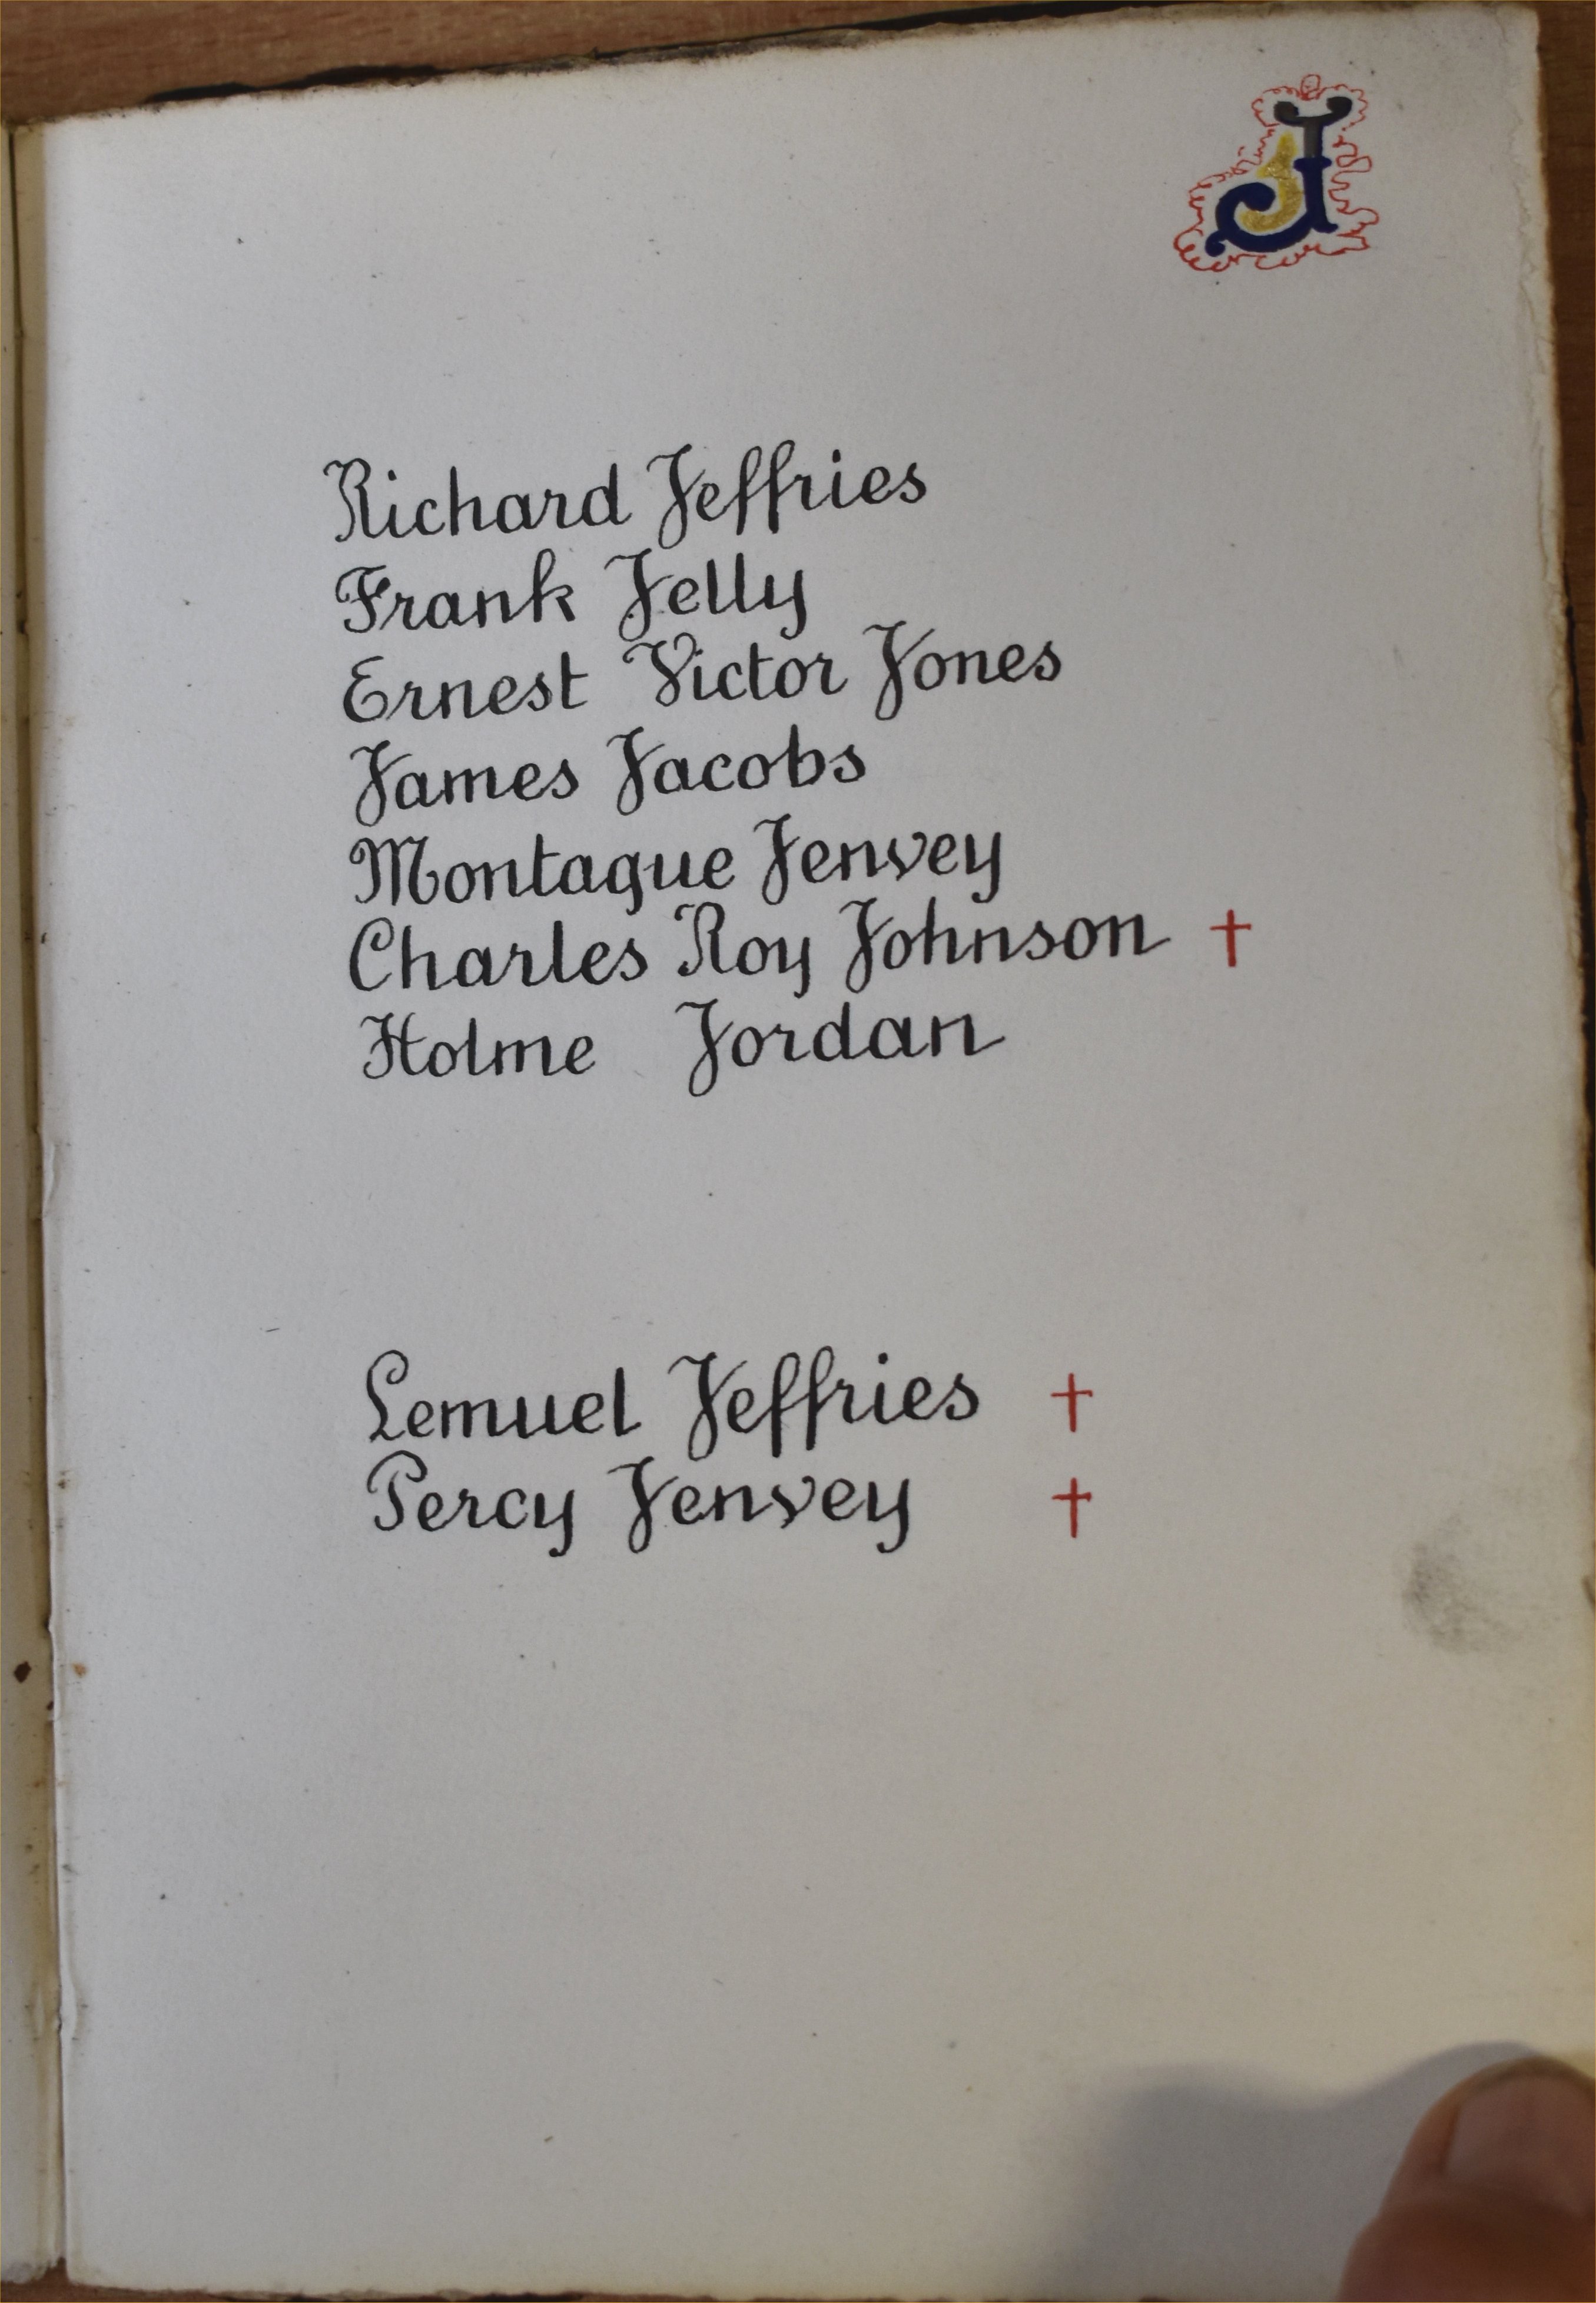 J
Richard Jeffries
Frank Jelly
Ernest Victor Jones
James Jacobs
Montague Jenvey
Charles Roy Johnson †
Holme Jordan
Lemuel Jeffries †
Percy Jenvey †